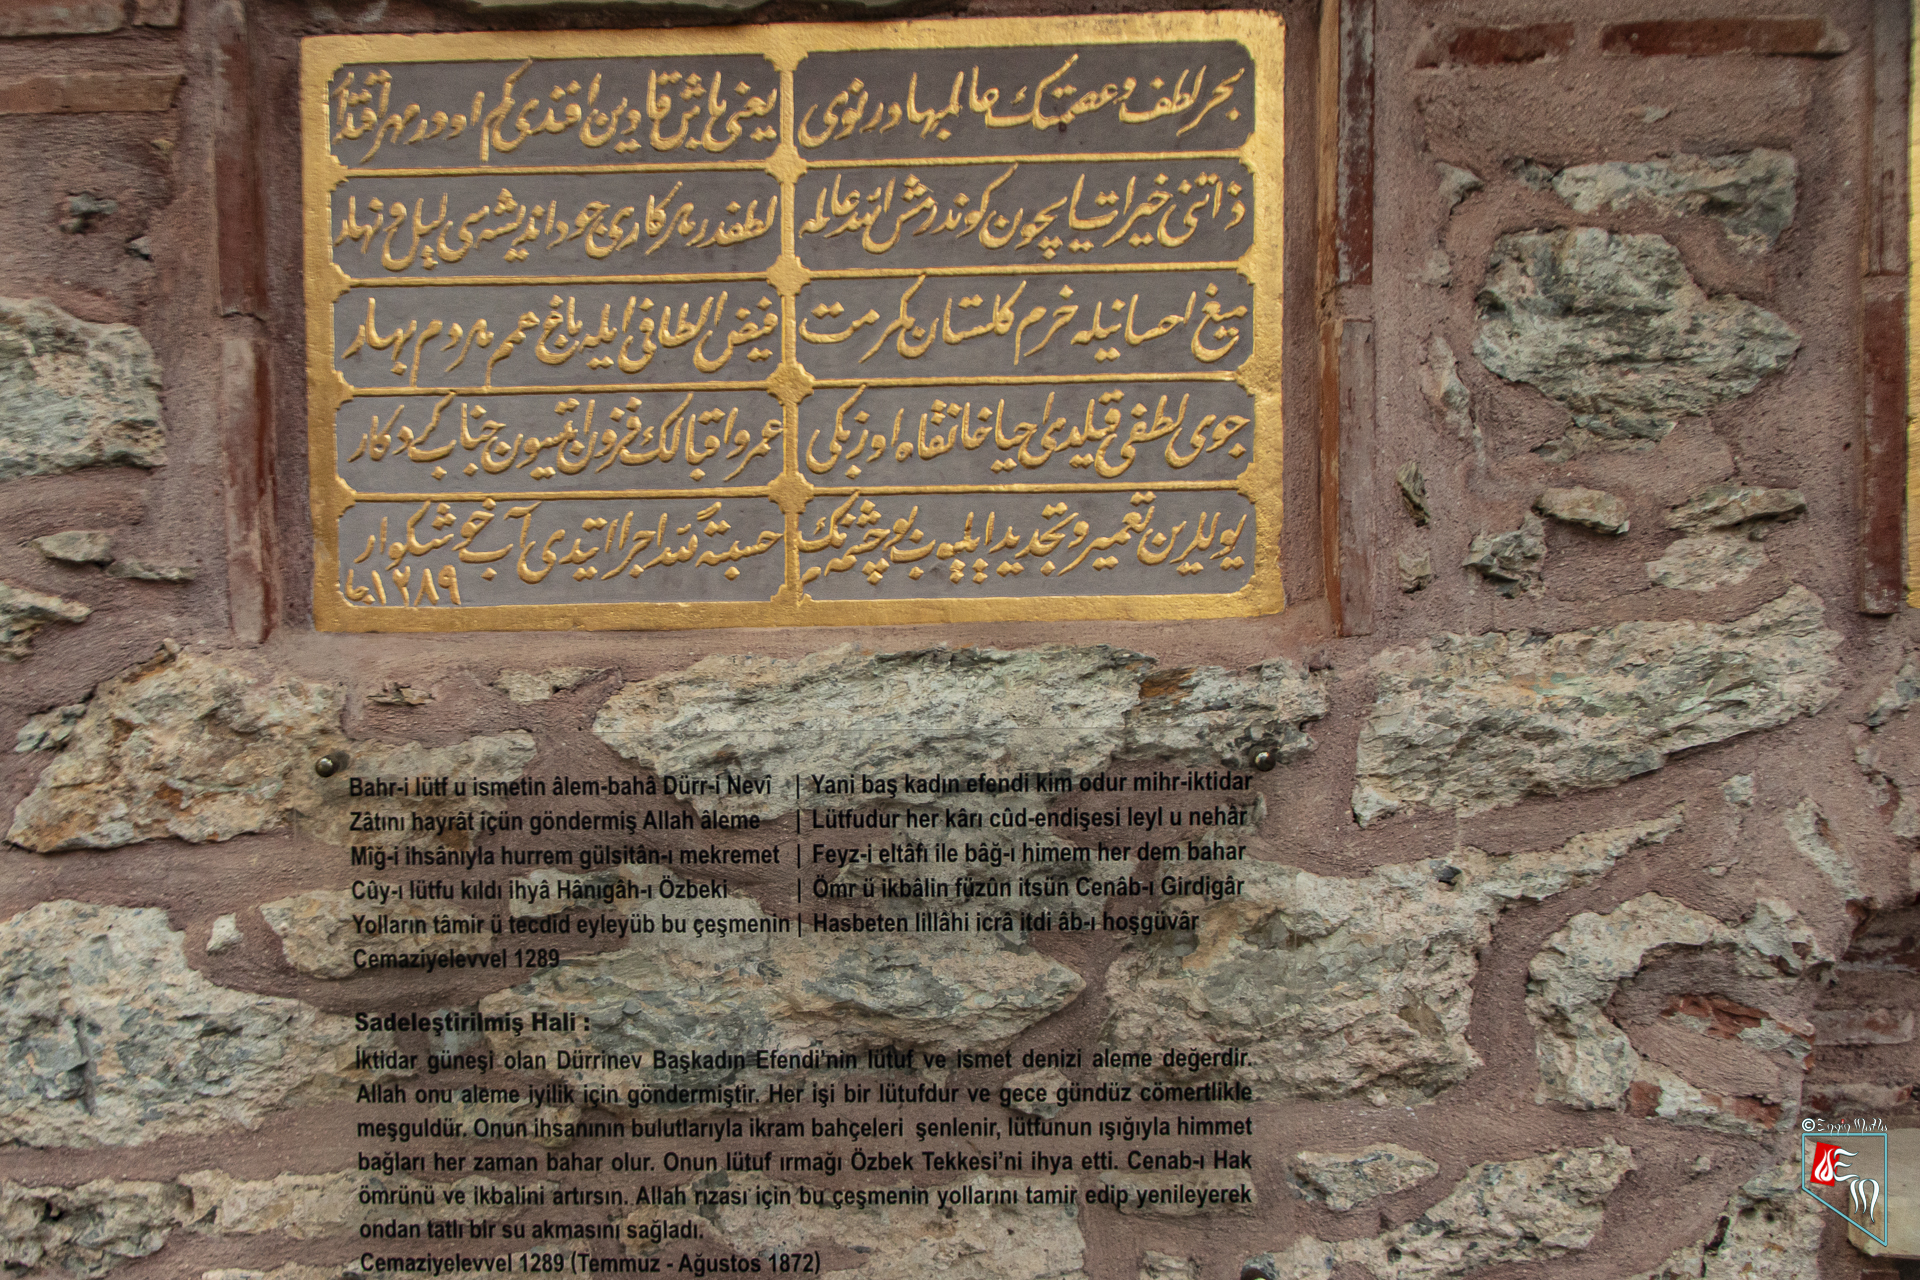 بحر لطف و عصمتك عالمبها در نوی یعنی باش قادین افندی كم اودر مهر اقتدار
ذاتنی خیرات ایچون كوندرمش الله عالمه لطفدر هر كاری جود اندیشه سی لیل و نهار
میغ احسانیله خرم كلستان مكرمت فیض الطافی ایله باغ همم هر دم بهار
جوی لطفی قیلدی احیا خانقاه اوزبكی عمر و اقبالك فزون ایتسون جناب كردكار
یوللرین تعمیر و تجدید ایلیوب بو چشمه نك حسبة لله اجرا ایتدی آب خوشكوار
جا ١٢٨٩
Bahr-i lütf u ismetin âlem-bahâ Dürr-i Nevî | Yani baş kadın efendi kim odur mihr-iktidar
Zâtını hayrât içün göndermiş Allah âleme | Lütfudur her kârı cûd-endişesi leyl u nehâr
Mîğ-i ihsânıyla hurrem gülsitân-ı mekremet | Feyz-i eltâfı ile bâğ-ı himem her dem bahar
Cûy-ı lütfu kıldı ihyâ Hânıgâh-ı Özbeki | Ömr ü ikbâlin füzûn itsün Cenâb-ı Girdigâr
Yolların tâmir ü tecdid eyleyüb bu çeşmenin | Hasbeten lillâhi icrâ itdi âb-ı hoşgüvâr
Cemaziyelevvel 1289
Sadeleştirilmiş Hali :
İktidar güneşi olan Dürrinev Başkadın Efendi'nin lütuf ve ismet denizi aleme değerdir.
Allah onu aleme iyilik için göndermiştir. Her işi bir lütufdur ve gece gündüz cömertlikle
meşguldür. Onun ihsanının bulutlarıyla ikram bahçeleri şenlenir, lütfunun ışığıyla himmet
bağları her zaman bahar olur. Onun lütuf ırmağı Özbek Tekkesi'ni ihya etti. Cenab-ı Hak
ömrünü ve ikbalini artırsın. Allah rızası için bu çeşmenin yollarını tamir edip yenileyerek
ondan tatlı bir su akmasını sağladı.
Cemaziyelevvel 1289 (Temmuz - Ağustos 1872)